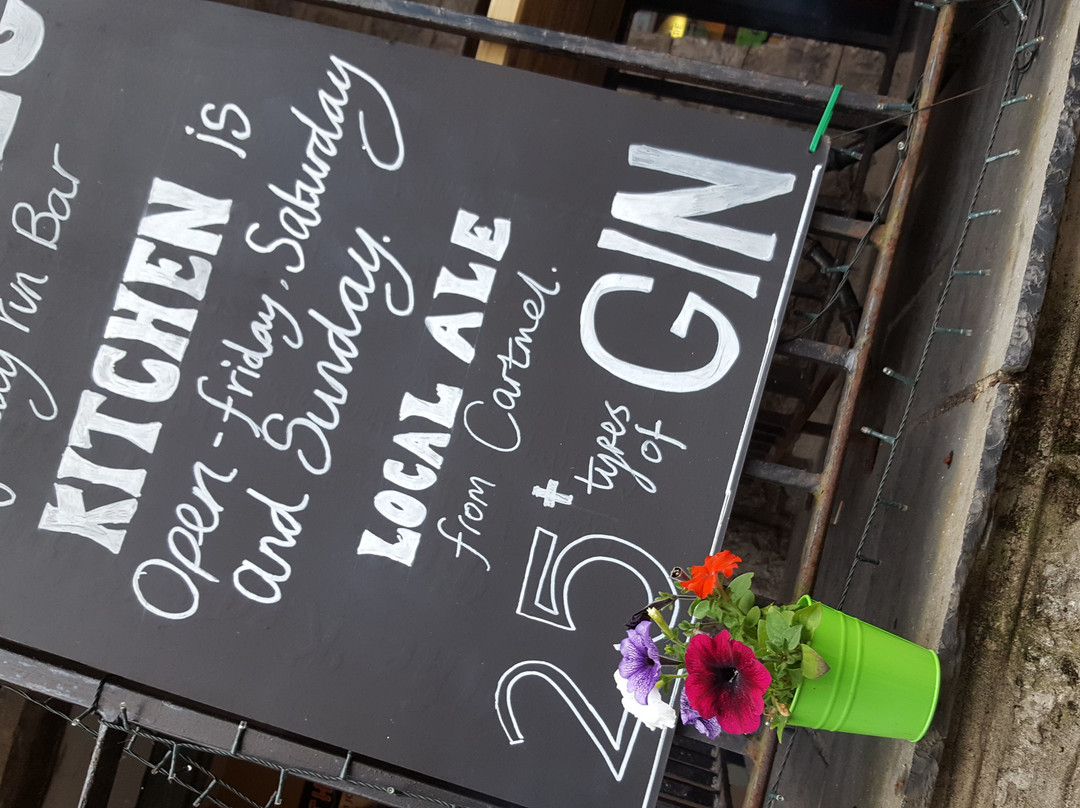 run Bar
KITCHEN is
Open - friday, Saturday
and Sunday.
LOCAL ALE
from Cartmel.
25+ types of GIN